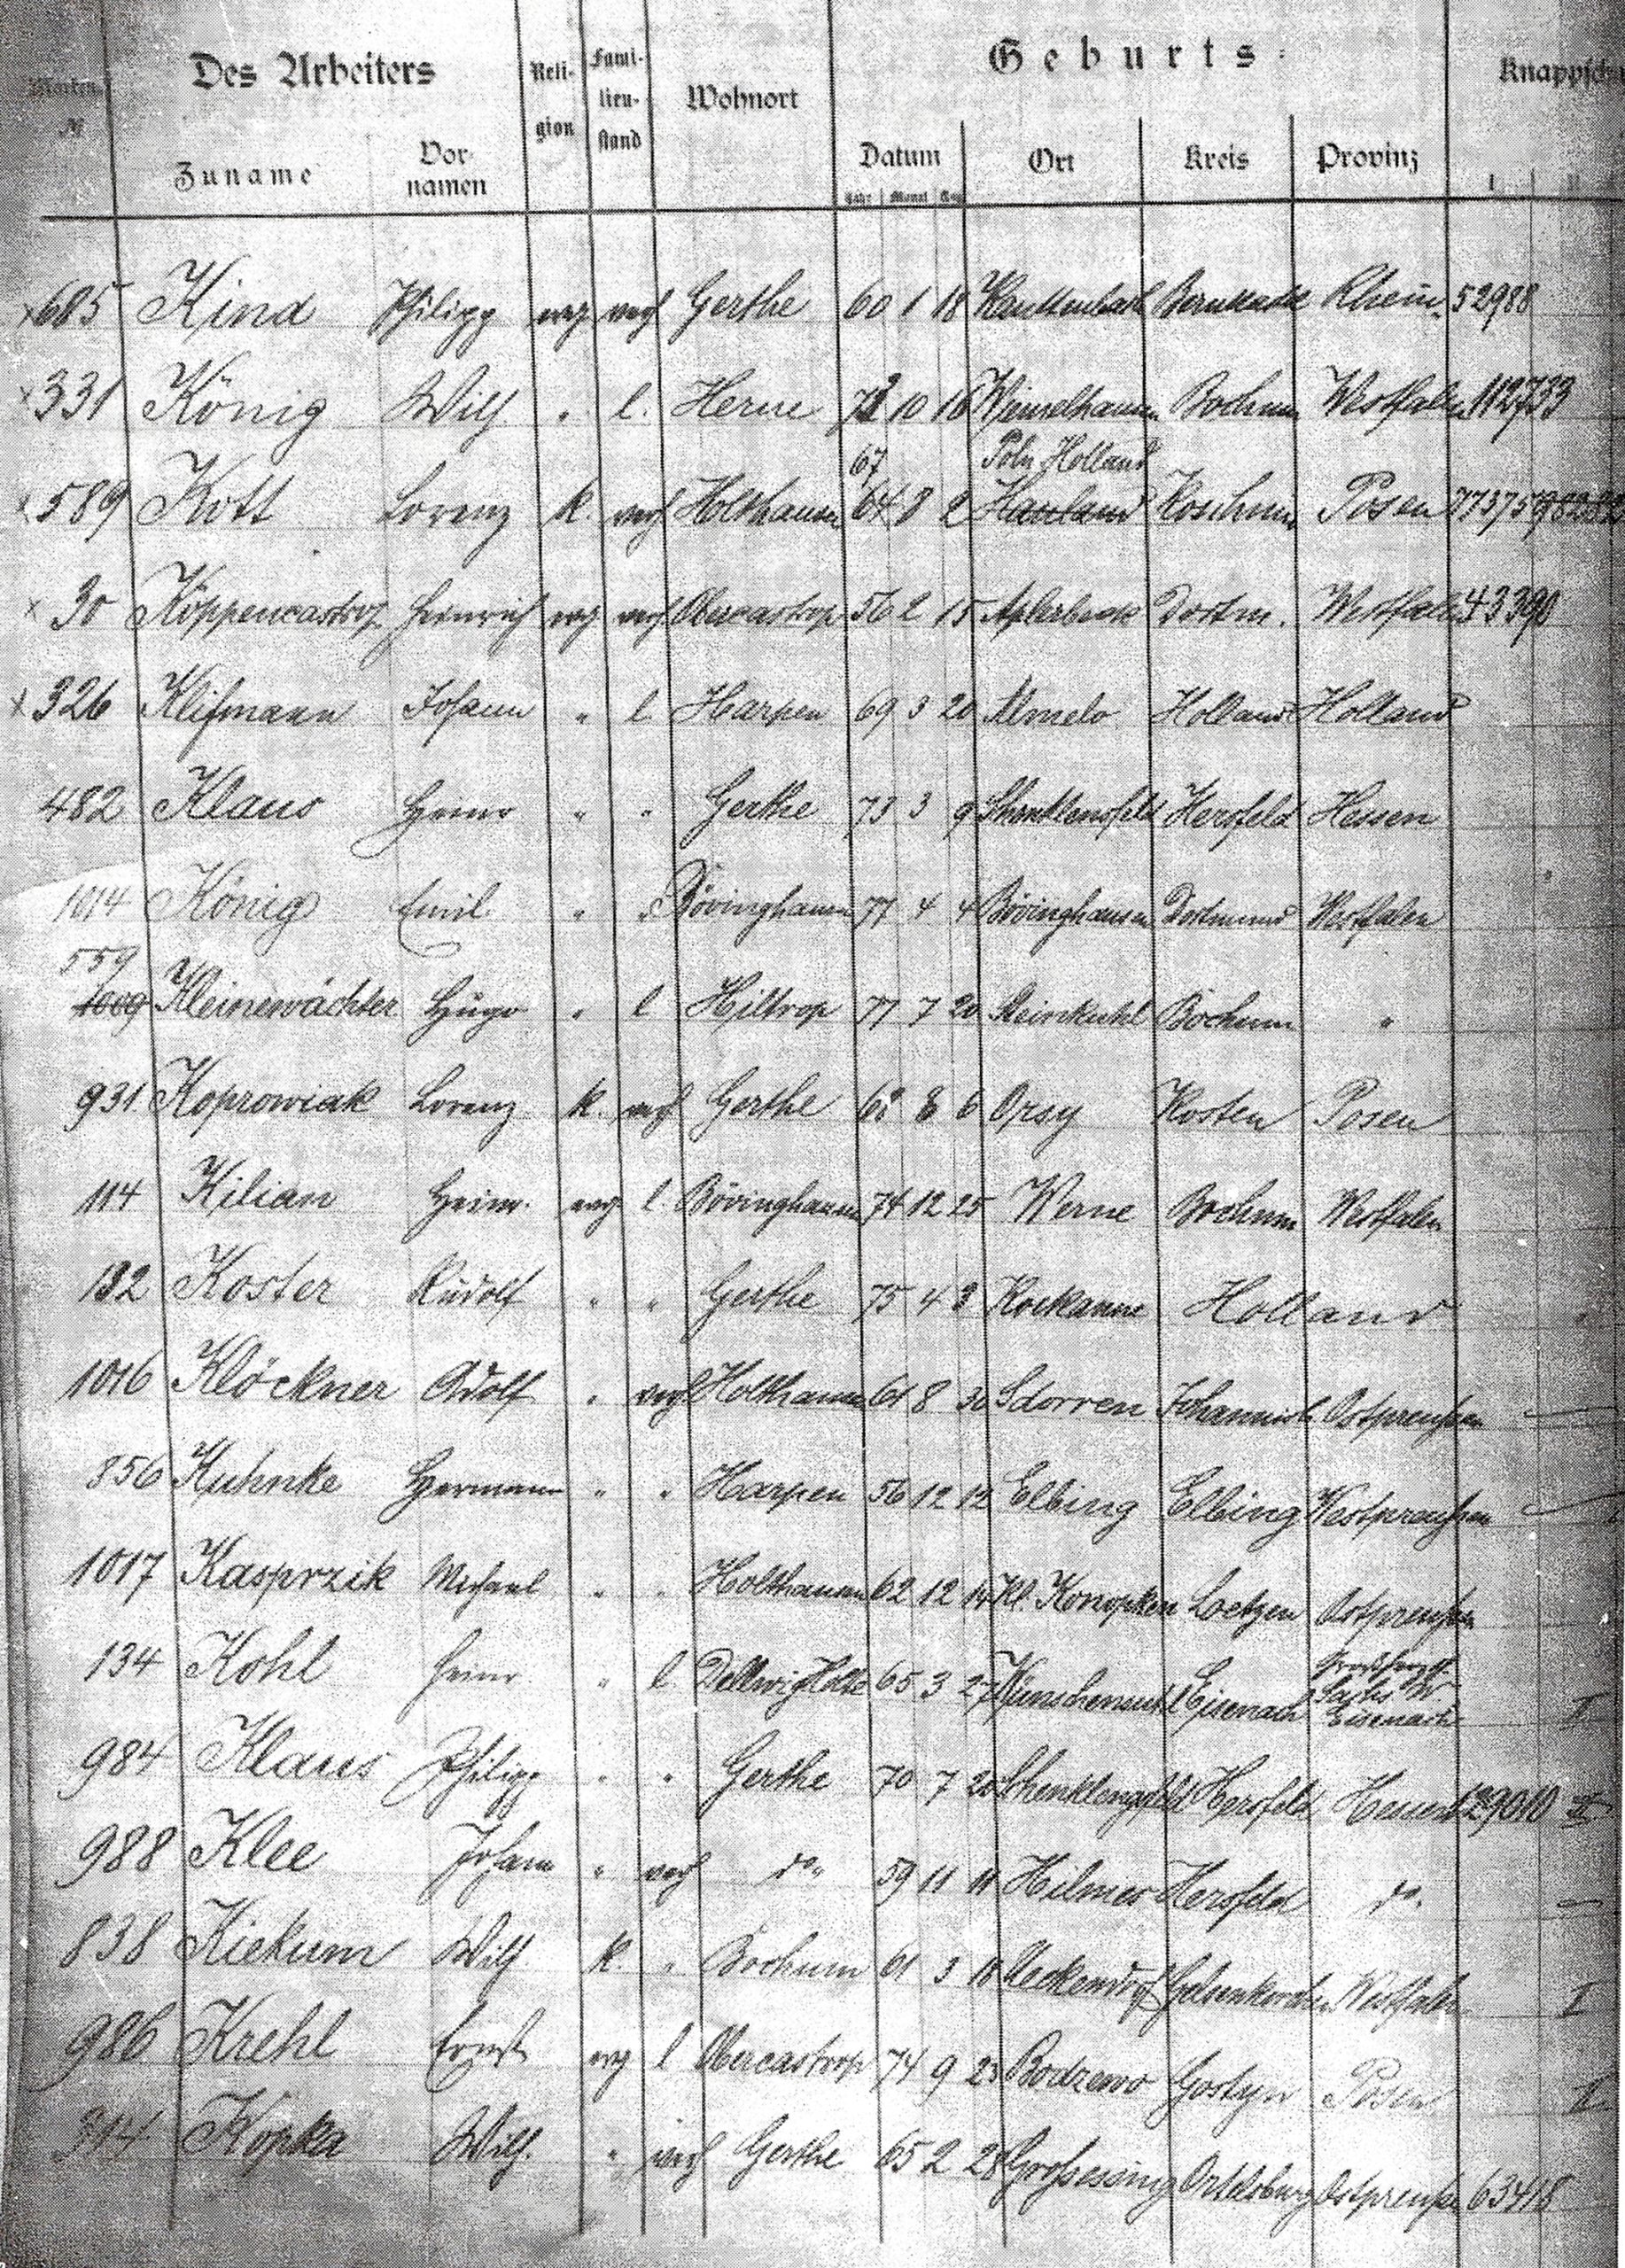 Marken № Des Arbeiters Reli-gion Fami-lien-stand Wohnort Geburts- Knappsch
Zuname Vor-namen Datum Ort Kreis Provinz I II
Jahr Monat Tag
×685 Kind Philipp evg verh Gerthe 60 1 18 Kautenbach Bernkastel Rhein. 52988
×331 König Wilh. " l. Herne 72 10 16 Wiemelhausen Bochum Westfalen 112733
67 Poln Holland
×589 Kott Lorenz k. verh Holthausen 64 8 2 Hauland Koschmin Posen
×30 Köppencastrop Heinrich evg verh Obercastrop 56 2 15 Aplerbeck Dortm. Westfalen 43390
×326 Klifmann Johann " l. Harpen 69 3 20 Almelo Holland Holland
482 Klaus Heinr " " Gerthe 73 3 9 Schenklensfeld Hersfeld Hessen
1014 König Emil " " Bövinghausen 77 4 4 Bövinghausen Dortmund Westfalen
559
1009 Kleinewächter Hugo " l Hiltrop 77 7 20 Steinkuhl Bochum "
931 Koprowiak Lorenz k. verh Gerthe 68 8 6 Orsy Kosten Posen
114 Kilian Heinr. evg. l. Bövinghausen 74 12 25 Werne Bochum Westfalen
132 Koster Rudolf " " Gerthe 75 4 3 Rockanne Holland
1016 Klöckner Adolf " verh Holthausen 61 8 30 Sdorren Johannisb Ostpreußen
856 Kuhnke Hermann " " Harpen 56 12 12 Elbing Elbing Westpreußen
1017 Kasprzik Michael " " Holthausen 62 12 14 Kl. Konopken Loetzen Ostpreußen
134 Kohl Heinr " l. Dellwig Holte 65 3 27 Wünschensuhl Eisenach Großherzgt. Sachs W. Eisenach II
984 Klaus Philipp " " Gerthe 70 7 20 Schenklengsfeld Hersfeld Hessen 129010 II
988 Klee Johann " verh do. 59 11 11 Hilmes Hersfeld do.
838 Kiekum Wilh. k. " Bochum 61 3 18 Ueckendorf Gelsenkirchen Westfalen I
986 Krehl Ernst evg l Obercastrop 74 9 23 Bodzewo Gostyn Posen II
914 Kopka Wilh. " verh Gerthe 65 2 28 Ortelsburg Ostpreußen 63418